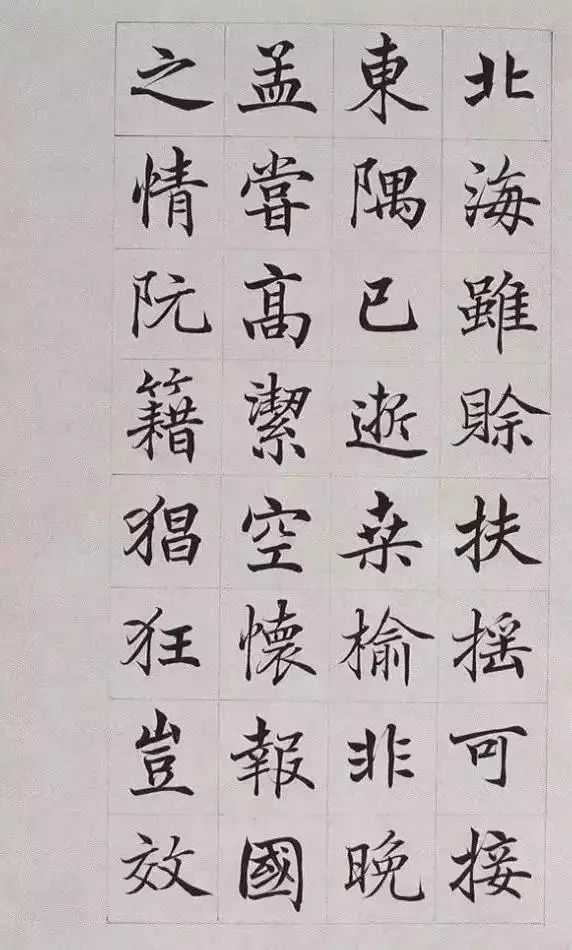 北海雖賒扶搖可接
東隅已逝桒榆非晚
孟嘗高潔空懷報國
之情阮籍猖狂豈效